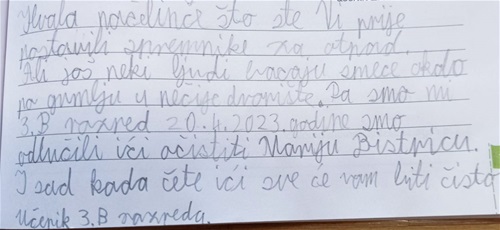 Hvala načelniče što ste Vi prije
postavili spremnike za otpad.
Ali još neki ljudi bacaju smeće okolo
na grmlju u nečije dvorište. Pa smo mi
3.B razred 20.4.2023. godine smo
odlučili ići očistiti Mariju Bistricu.
I sad kada čete ići sve će vam biti čisto
Učenik 3.B razreda.